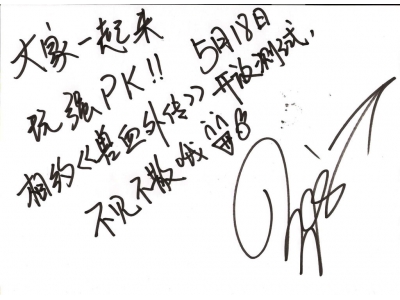 大家一起来
玩强PK!! 5月18日
相约《兽血外传》开放测试,
不见不散哦